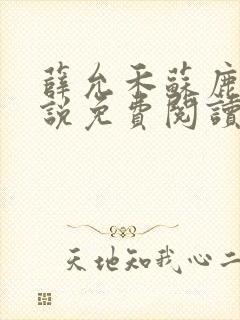 薛允禾蘇鹿
說免費閱讀
天地知我心二